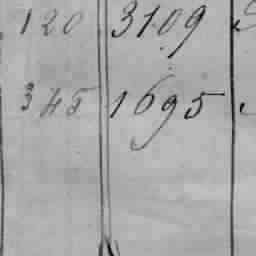 120 3109
345 1695